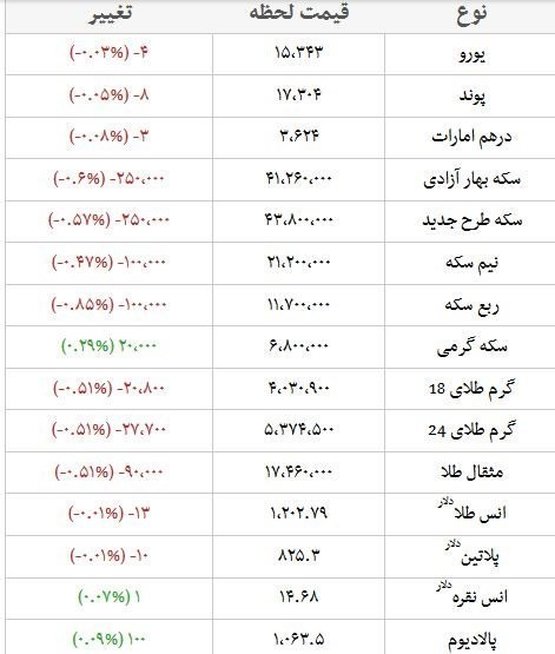 نوع قیمت لحظه تغییر
یورو ۱۵،۳۴۳ (-۰.۰۳%) -۴
پوند ۱۷،۳۰۴ (-۰.۰۵%) -۸
درهم امارات ۳،۶۲۴ (-۰.۰۸%) -۳
سکه بهار آزادی ۴۱،۲۶۰،۰۰۰ (-۰.۶%) -۲۵۰،۰۰۰
سکه طرح جدید ۴۳،۸۰۰،۰۰۰ (-۰.۵۷%) -۲۵۰،۰۰۰
نیم سکه ۲۱،۲۰۰،۰۰۰ (-۰.۴۷%) -۱۰۰،۰۰۰
ربع سکه ۱۱،۷۰۰،۰۰۰ (-۰.۸۵%) -۱۰۰،۰۰۰
سکه گرمی ۶،۸۰۰،۰۰۰ (۰.۲۹%) ۲۰،۰۰۰
گرم طلای 18 ۴،۰۳۰،۹۰۰ (-۰.۵۱%) -۲۰،۸۰۰
گرم طلای 24 ۵،۳۷۴،۵۰۰ (-۰.۵۱%) -۲۷،۷۰۰
مثقال طلا ۱۷،۴۶۰،۰۰۰ (-۰.۵۱%) -۹۰،۰۰۰
انس طلا دلار ۱،۲۰۲.۷۹ (-۰.۰۱%) -۱۳
پلاتین دلار ۸۲۵.۳ (-۰.۰۱%) -۱۰
انس نقره دلار ۱۴.۶۸ (۰.۰۷%) ۱
پالادیوم ۱،۰۶۳.۵ (۰.۰۹%) ۱۰۰